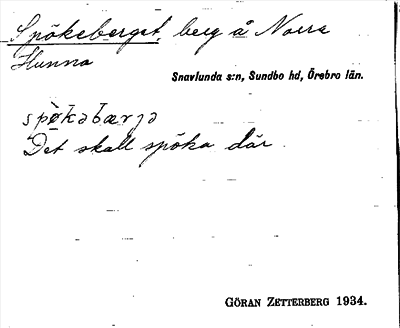 Spökeberget, berg å Norra
Hunna
Snavlunda s:n, Sundbo hd, Örebro län.
spø̀kəbærjə
Det skall spöka där.
GÖRAN ZETTERBERG 1934.